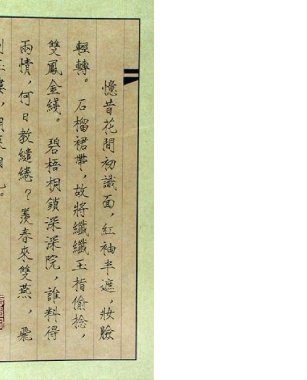 憶昔花間初識面，紅袖半遮，妝臉
輕轉。石榴裙帶，故將纖纖玉指偷捻，
雙鳳金綫。碧梧桐鎖深深院，誰料得
兩情，何日教繾綣？羨春來雙燕，飛